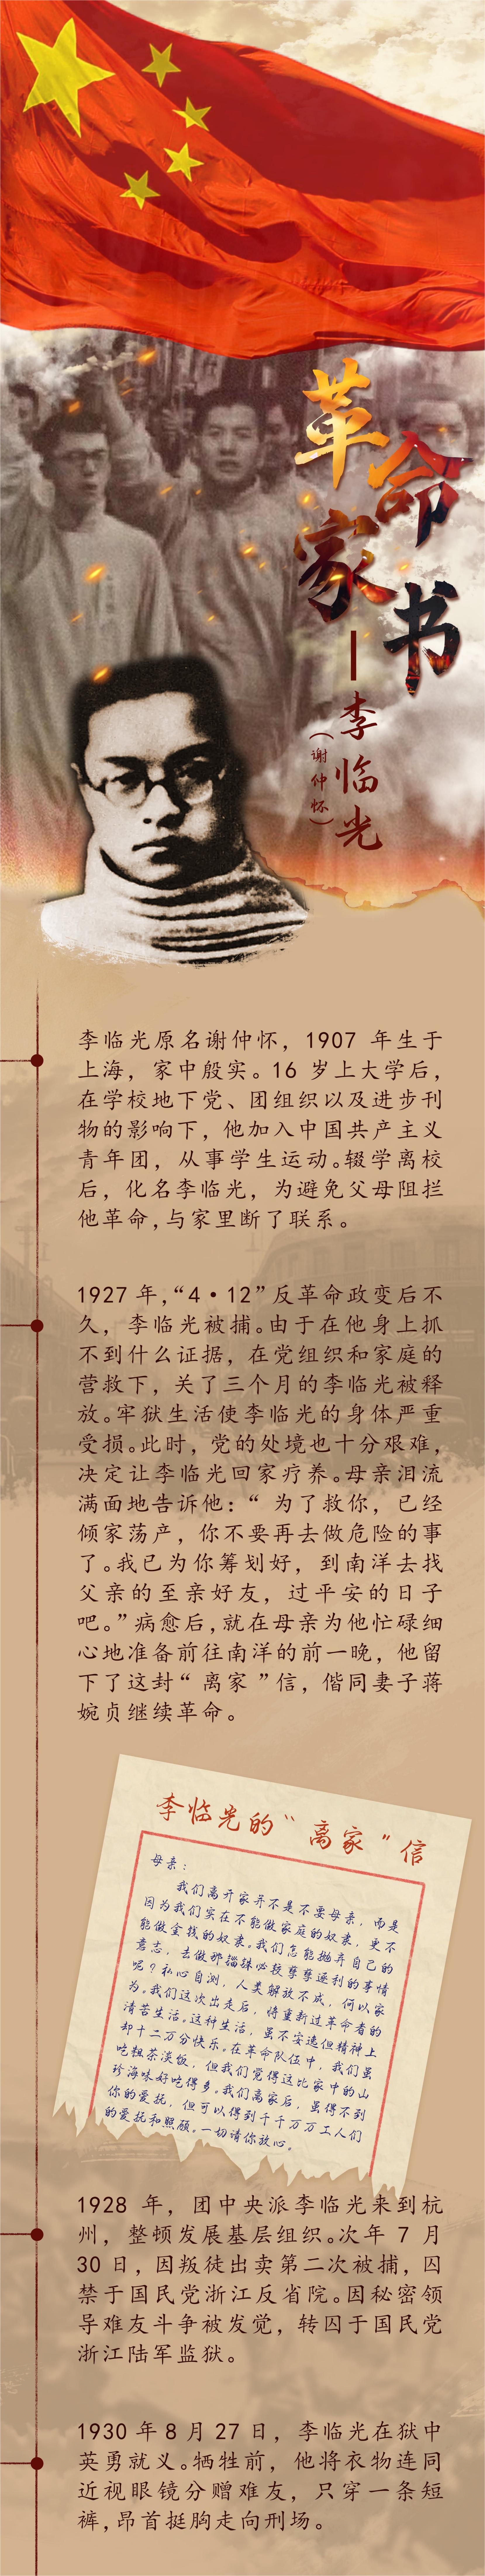 革命
家书
—李临光
（谢仲怀）
李临光原名谢仲怀，1907 年生于
上海，家中殷实。16 岁上大学后，
在学校地下党、团组织以及进步刊
物的影响下，他加入中国共产主义
青年团，从事学生运动。辍学离校
后，化名李临光，为避免父母阻拦
他革命,与家里断了联系。
1927 年,“4·12”反革命政变后不
久，李临光被捕。由于在他身上抓
不到什么证据，在党组织和家庭的
营救下，关了三个月的李临光被释
放。牢狱生活使李临光的身体严重
受损。此时，党的处境也十分艰难，
决定让李临光回家疗养。母亲泪流
满面地告诉他：“ 为了救你，已经
倾家荡产，你不要再去做危险的事
了。我已为你筹划好，到南洋去找
父亲的至亲好友，过平安的日子
吧。”病愈后,就在母亲为他忙碌细
心地准备前往南洋的前一晚，他留
下了这封“ 离家 ”信，偕同妻子蒋
婉贞继续革命。
李临光的“ 离家 ”信
母亲：
我们离开家并不是不要母亲，而是
因为我们实在不能做家庭的奴隶，更不
能做金钱的奴隶。我们怎能抛弃自己的
意志，去做那锱铢必较孳孳逐利的事情
呢？私心自测，人类解放不成，何以家
为。我们这次出走后，将重新过革命者的
清苦生活。这种生活，虽不安逸但精神上
却十二万分快乐。在革命队伍中，我们虽
吃粗茶淡饭，但我们觉得这比家中的山
珍海味好吃得多。我们离家后，虽得不到
你的爱抚，但可以得到千千万万工人们
的爱抚和照顾。一切请你放心。
1928 年，团中央派李临光来到杭
州，整顿发展基层组织。次年 7 月
30 日，因叛徒出卖第二次被捕，囚
禁于国民党浙江反省院。因秘密领
导难友斗争被发觉，转囚于国民党
浙江陆军监狱。
1930 年 8 月 27 日，李临光在狱中
英勇就义。牺牲前，他将衣物连同
近视眼镜分赠难友，只穿一条短
裤,昂首挺胸走向刑场。